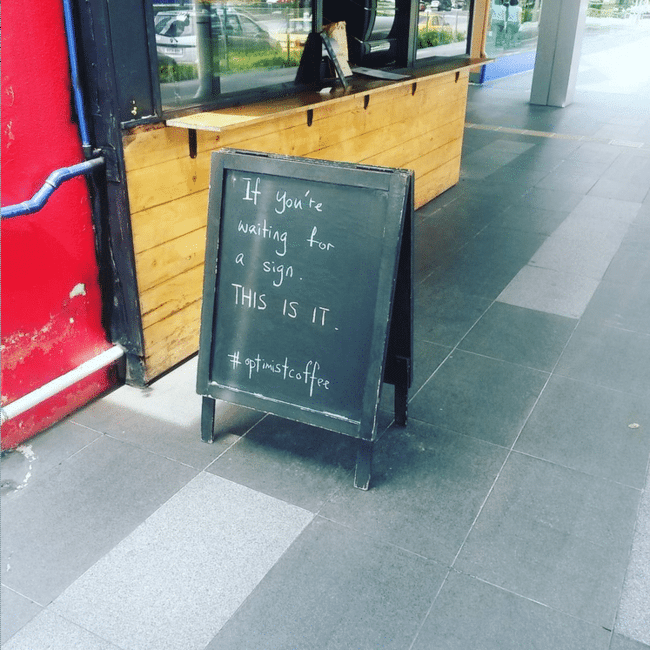 If you're
waiting for
a sign.
THIS IS IT.
#optimistcoffee